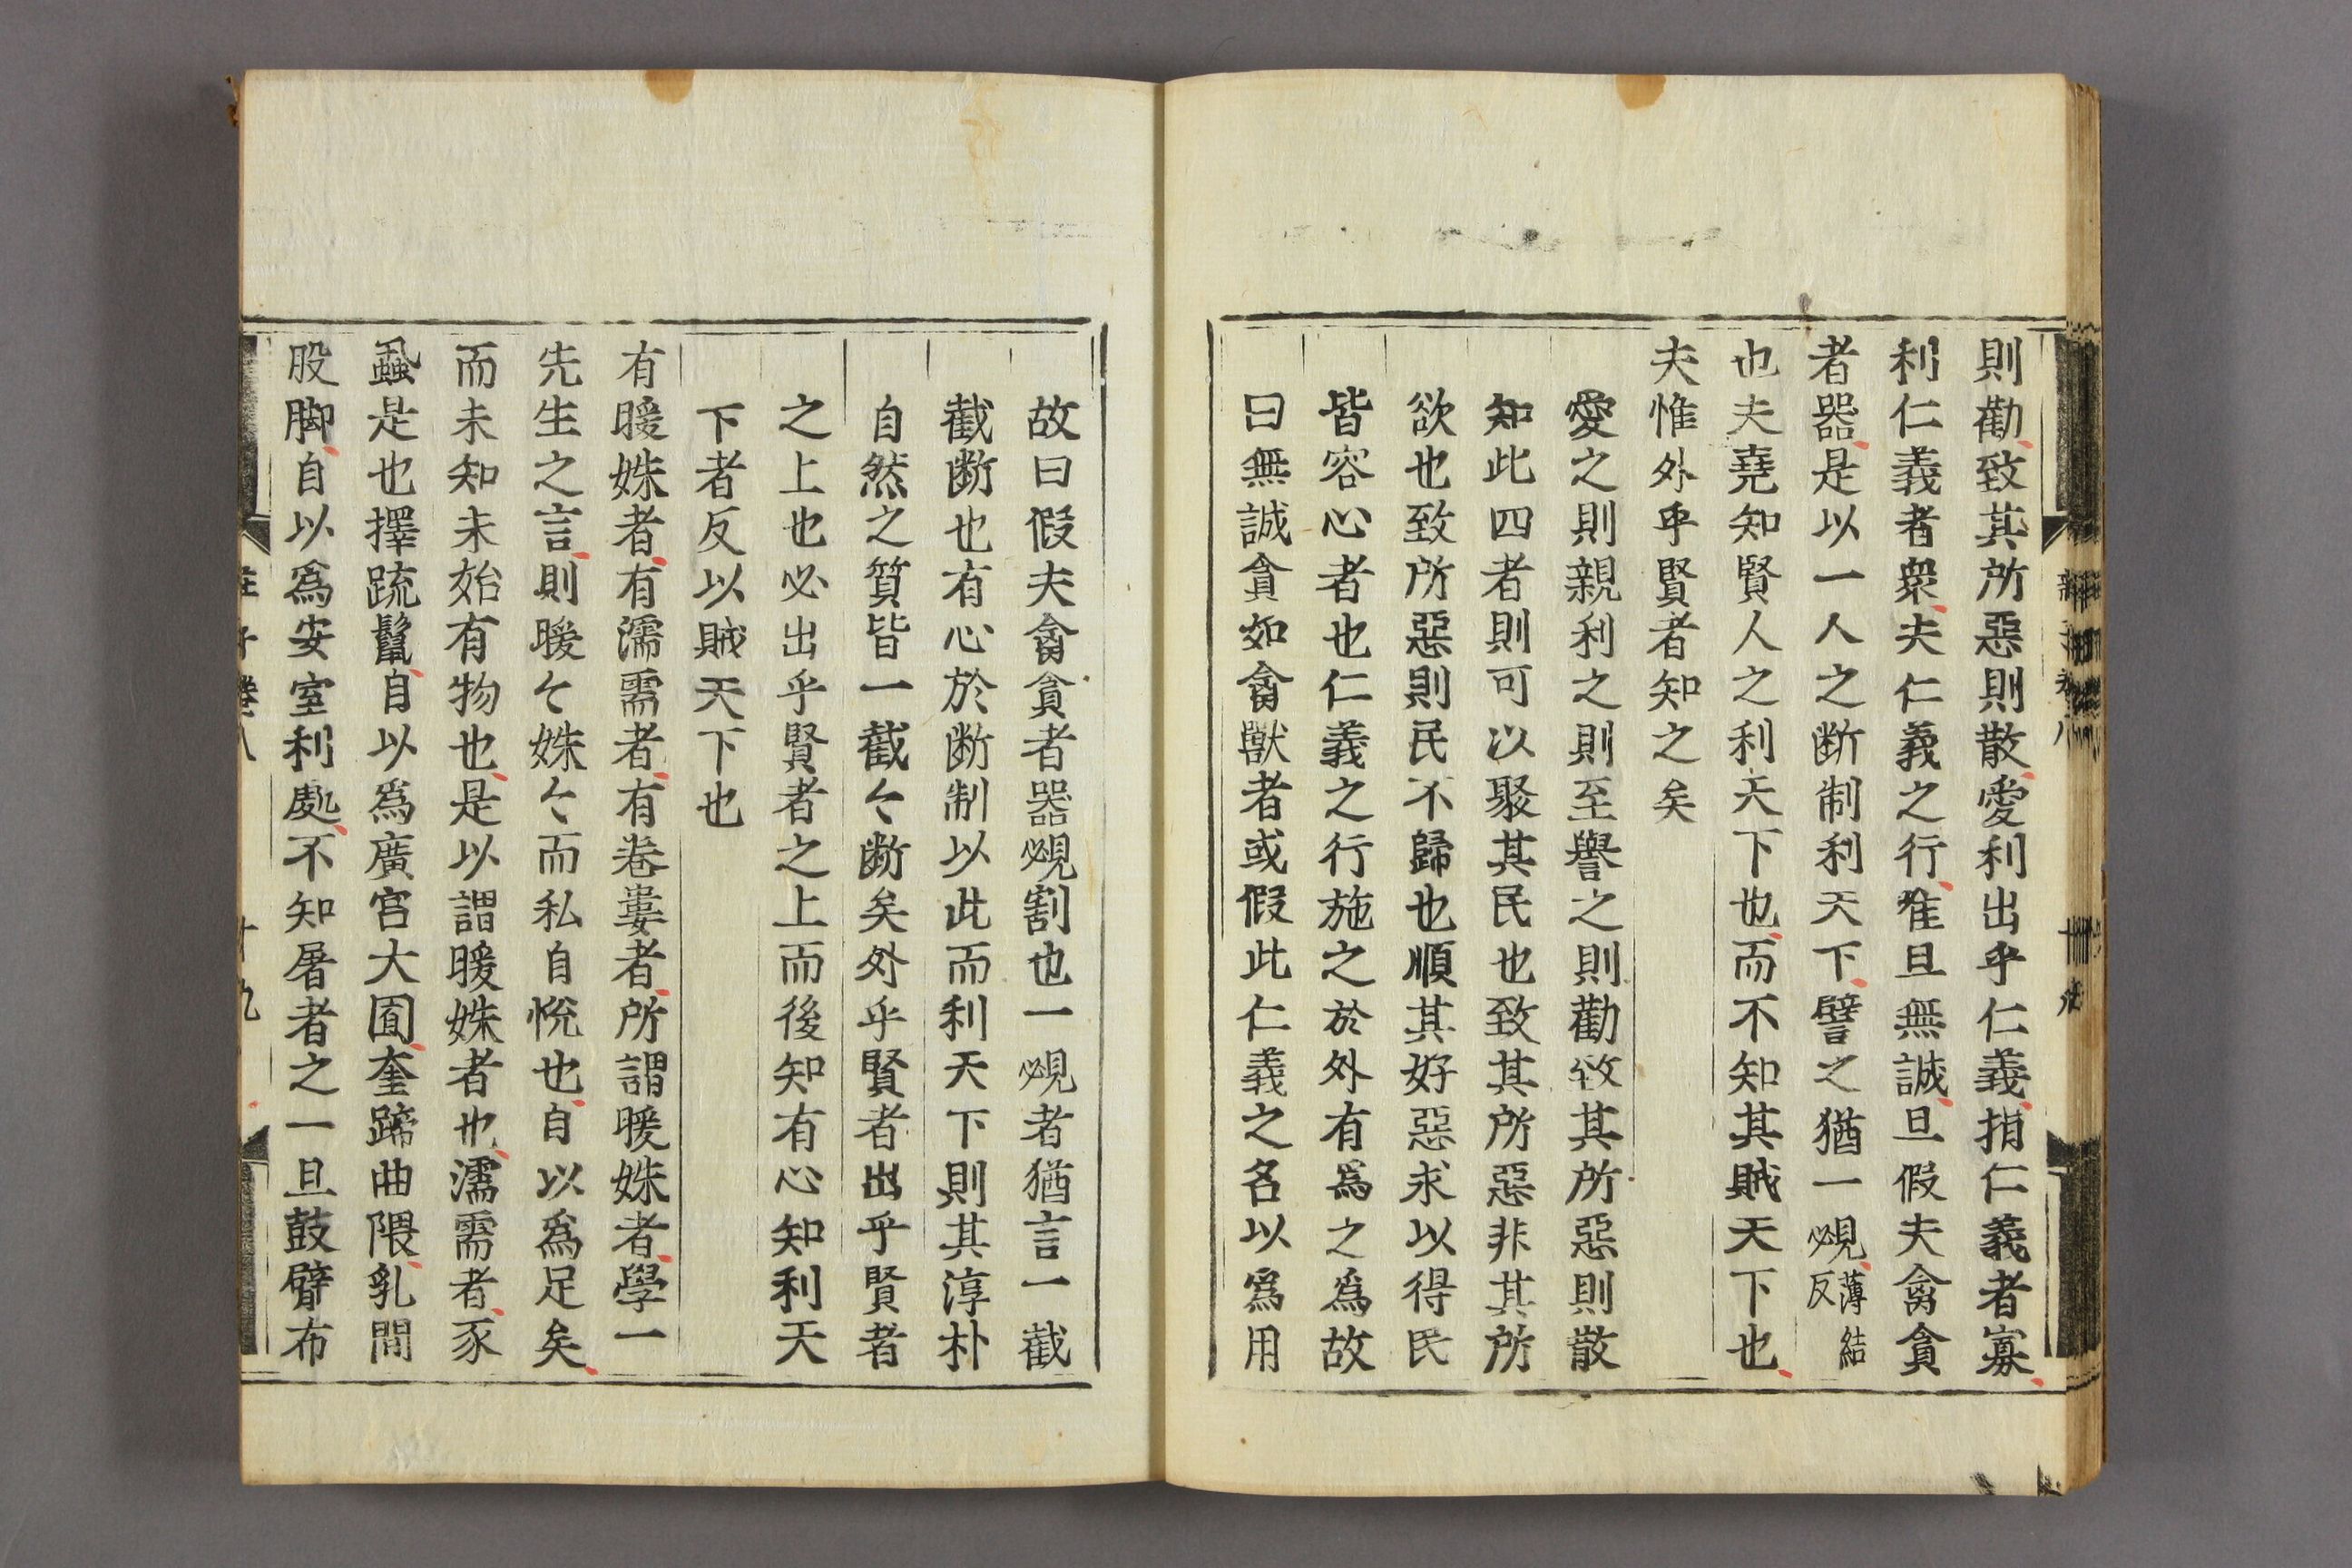 則勸致其所惡則散愛利出乎仁義捐仁義者寡
利仁義者衆夫仁義之行唯且無誠且假夫禽貪
者器是以一人之断制利天下譬之猶一覕薄結反
也夫堯知賢人之利天下也而不知其賊天下也
夫惟外乎賢者知之矣
愛之則親利之則至譽之則勸致其所惡則散
知此四者則可以聚其民也致其所惡非其所
欲也致所惡則民不歸也順其好惡求以得民
皆容心者也仁義之行施之於外有爲之爲故
曰無誠貪如禽獸者或假此仁義之名以爲用
故曰假夫禽貪者器覕割也一覕者猶言一截
截断也有心於断制以此而利天下則其淳朴
自然之質皆一截々断矣外乎賢者出乎賢者
之上也必出乎賢者之上而後知有心知利天
下者反以賊天下也
有暖姝者有濡需者有卷婁者所謂暖姝者學一
先生之言則暖々姝々而私自悅也自以爲足矣
而未知未始有物也是以謂暖姝者也濡需者豕
蝨是也擇疏鬣自以爲廣宮大囿奎蹄曲隈乳間
股脚自以爲安室利處不知屠者之一旦鼓臂布
莊子卷八
十九